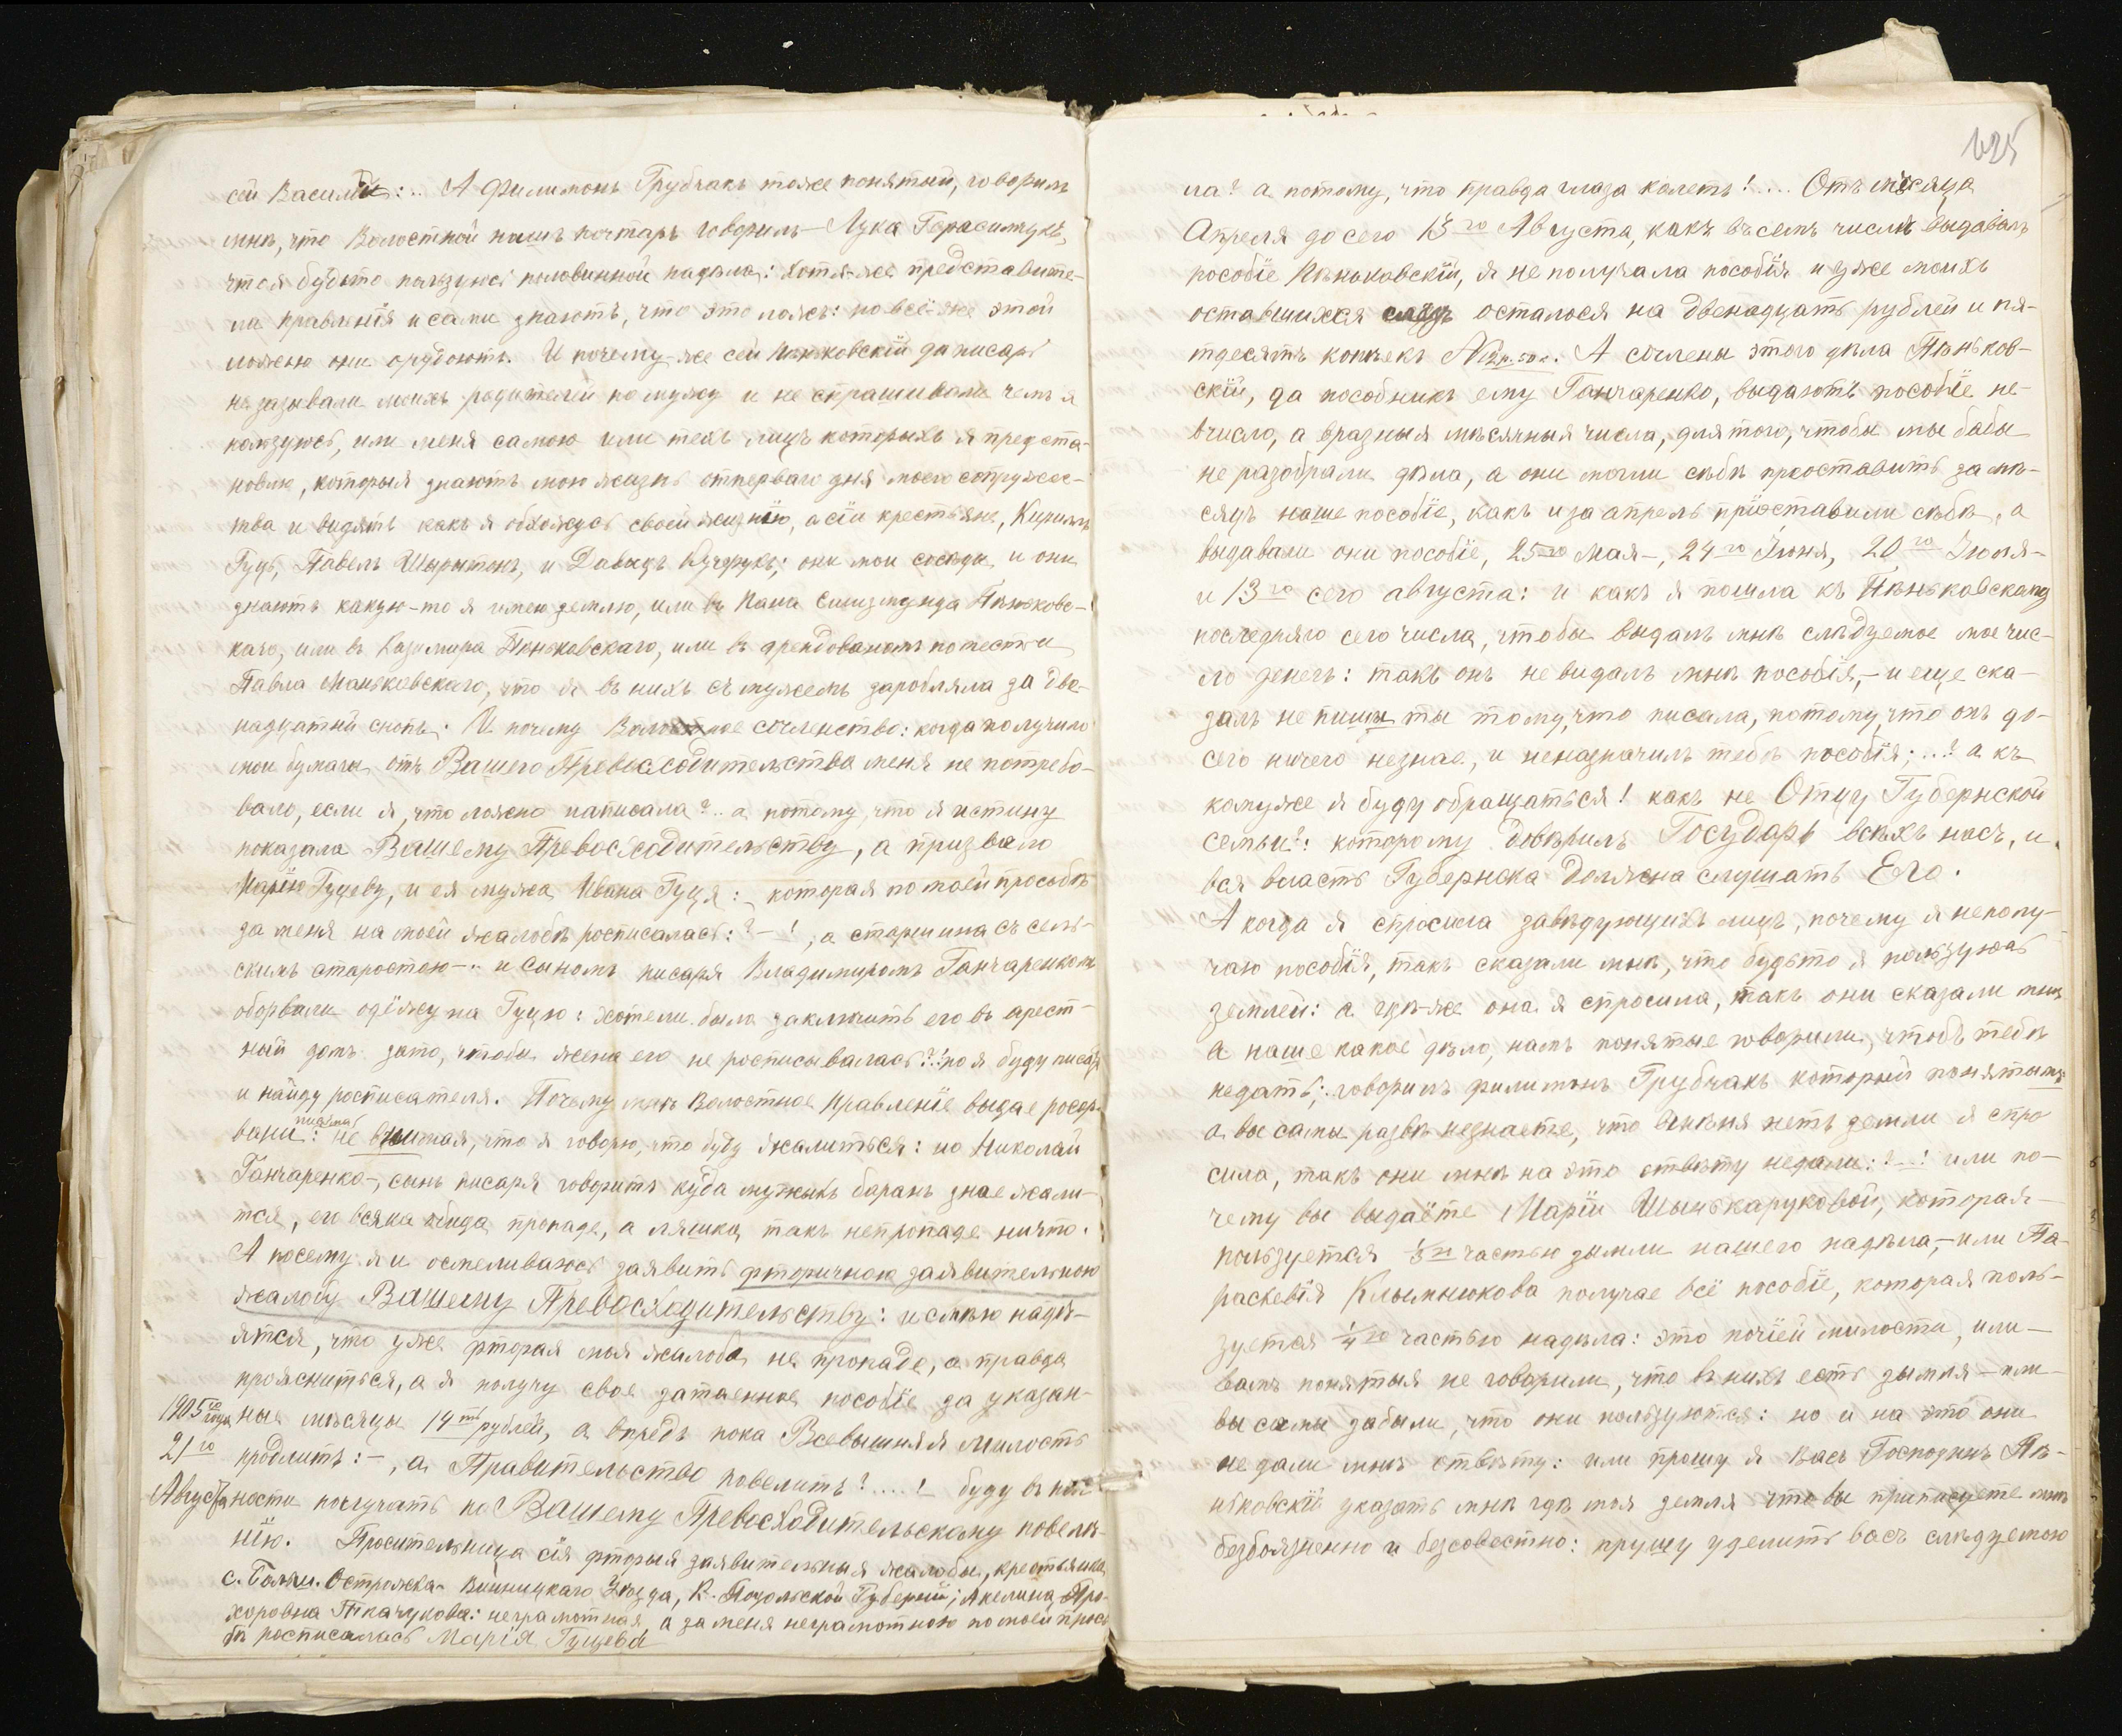 сей Василий:.. А Филимонъ Грубчакъ тоже понятый, говорилъ
мнѣ, что Волостной нашъ почтарь говорилъ Лука Герасимукъ,
что я будьто ползуюсь половинной надѣла: хотя-же представите-
ла правленія и сами знаютъ, что это ложъ: но всё-же этой
ложею они орудоютъ. И почему-же сей Пѣньковскій да писарь
не зазывали моихъ родителей по мужу и не спрашивали чемъ я
ползуюсь, или меня самою или техъ лицъ которыхъ я предста-
новлю, которыя знаютъ мою жизнь отперваго дня моего супружес-
тва и видятъ какъ я обхожусь своей жизнію, а сіи крестьяне, Кирилъ
Гуцъ, Павелъ Шыритокъ, и Давидъ Кучерукъ; они мои соседи, и они
знаютъ какую-то я имею землю, или въ Пана Сигизмунда Пѣньковс-
каго, или въ Казимира Пѣньковскаго, или въ арендованомъ поместіи
Павла Маньковскаго, что я въ нихъ съ мужемъ заробляла за две-
надцатый снопъ. И почему Волостное сочленство: когда получило
мои бумаги отъ Вашего Превосходительства меня не потребо-
вало, если я, что ложно написала?.. а потому, что я истину
показала Вашему Превосходительству, а призвало
Марію Гуцеву, и ея мужа Ивана Гуця: которая по моей просьбѣ
за меня на моей жалобѣ росписалась:?-!, а старшина съ сель-
скимъ старостою-.. и сыномъ писаря Владимиромъ Ганчаренкомъ
оборвали одёжу на Гуцю: хотели была заключить его въ арест-
ный домъ зато, чтобы жена его не росписывалась?! но я буду писать
и найду росписателя. Почему такъ Волостное Правленіе выдае
вани: не внимая, что я говорю, что буду жалиться: но Николай
Ганчаренко-, сынъ писаря говоритъ куда мужыкъ баранъ знае жали-
тся, его всяка обида пропаде, а ляшка такъ непропаде ничто.
А посему я и осмеливаюсь заявить фторичною заявительною
жалобу Вашему Превосходительству: и смѣю надѣ-
ятся, что уже фторая моя жалоба не пропаде, а правда
прояснится, а я получу свое затаенное пособіе да указан-
1905го года ные мѣсяцы 14ть рублей, а впредъ пока Всевышняя милость
21го продлитъ:-, а Правительство повелитъ?....! буду въ пол-
Августа ности получать по Вашему Превосходительскому повелѣ-
нію. Просительница сія фторыя заявительныя жалобы, крестьянка
с. Больш. Острожка Винницкаго Уѣзда, К. Подольской Губерніи; Акелина Про-
хоровна Ткачукова: неграмотная, а за меня неграмотною по моей прось
бѣ росписалась Марія Гуцева
425
ла? а потому, что правда глаза колетъ!.... Отъ мѣсяца
Апреля до сего 13го Августа, какъ въ семъ числѣ выдавалъ
пособіе Пѣньковскій, я не получала пособія и уже моихъ
оставшихся осталося на двенадцать рублей и пя-
тдесятъ копѣекъ 12 р. 50 к. А сочлены этого дѣла Пѣньков-
скій, да пособникъ ему Ганчаренко, выдаютъ пособіе не-
вчисло, а вразныя мѣсячныя числа, для того, чтобы мы бабы
не разобрали дѣла, а они могли сѣбѣ приоставить за мѣ-
сяцъ наше пособіе, какъ и за апрель пріоставили сѣбѣ, а
выдавали они пособіе, 25го Мая-, 24го Іюня, 20го Іюля-
и 13го сего августа: и какъ я пошла къ Пѣньковскому
последняго сего числа, чтобы выдалъ мнѣ слѣдуемое мое чис-
ло денегъ: такъ онъ не видалъ мнѣ пособія,- и еще ска-
залъ не пишы ты тому, что писала, потому, что онъ до-
сего ничего незнае, и неназначилъ тебѣ пособія;...? а къ
комуже я буду обращаться! какъ не Отцу Губернской
семьи?: которому довѣрилъ Государь всѣхъ насъ, и
вся власть Губернска должна слушать Его.
А когда я спросила завѣдующихъ лицъ, почему я неполу-
чаю пособія, такъ сказали мнѣ, что будьто я пользуюсь
землей: а гдѣ-же она я спросила, такъ они сказали мнѣ
а наше какое дѣло, намъ понятые говорили, чтобъ тебѣ
недать; говорилъ Филимонъ Грубчакъ который понятымъ
а вы самы развѣ незнаете, что вмѣня нетъ земли я спро
сила, такъ они мнѣ на это ответу недали:?-! или по-
чему вы выдаёте Маріи Шынькаруковой, которая-
пользуется частью зымли нашего надѣла,- или Па-
раскевія Клымнюкова получае всё пособіе, которая поль-
зуется 1/4ю частью надѣла: это почіей милости, или-
вамъ понятыя не говорили, что в нихъ есть зымля-или
вы самы забыли, что они ползуются: но и на это они
не дали мнѣ ответу: или прошу я Васъ Господинъ Пѣ-
ньковскій указать мнѣ гдѣ моя земля что вы приписуете мнѣ
безбоязненно и безсовестно: прушу уделить васъ слѣдуемою